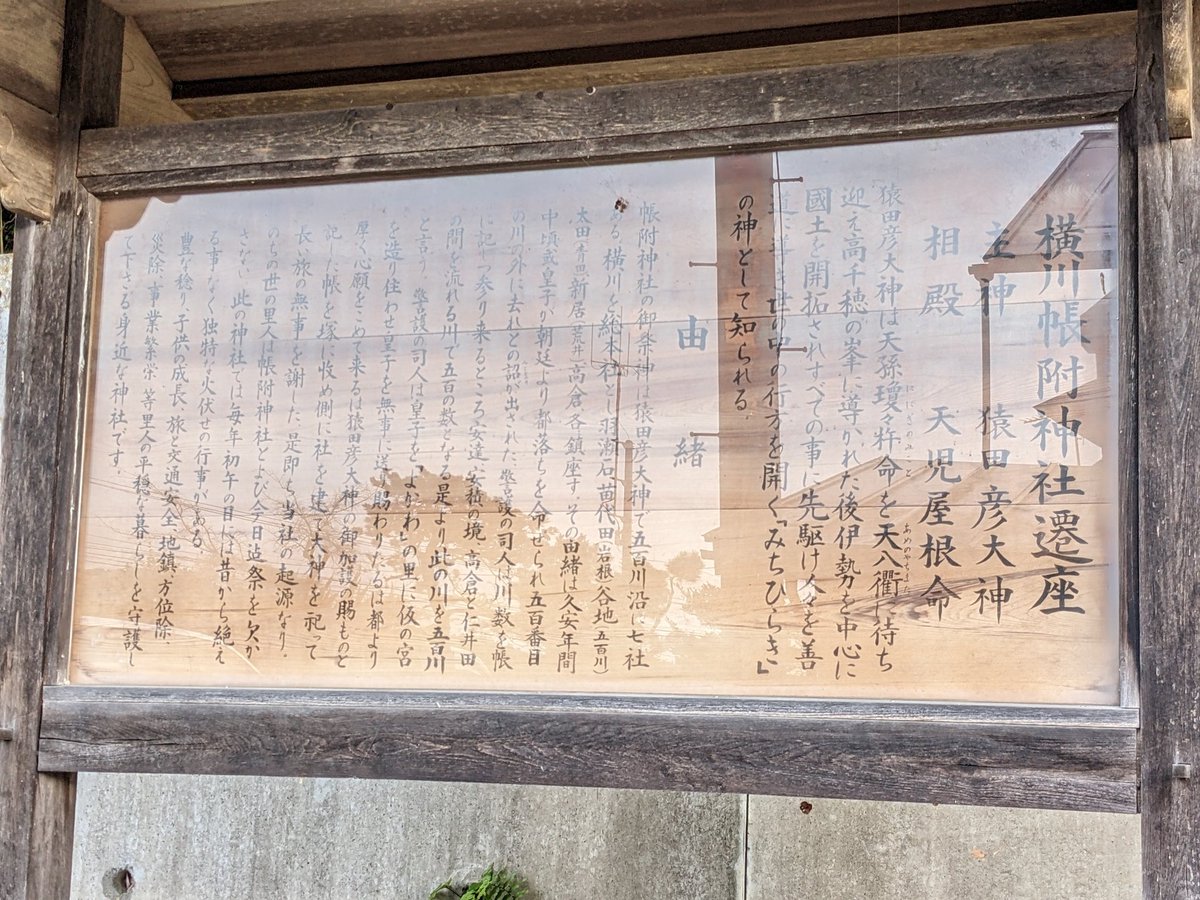 横川帳附神社遷座
主神 猿田彦大神
相殿 天児屋根命
あめのやちまた
猿田彦大神は天孫瓊々杵命を天八衢に待ち
ににぎのみこと
迎え高千穂の峯に導かれた後伊勢を中心に
國土を開拓されすべての事に先駆け人々を善
道に導き世の中の行方を開く「みちひらき」
の神として知られる
由緒
帳附神社の御祭神は猿田彦大神で五百川沿に七社
ある。横川を総本社とし羽瀬石苗代田(岩根)谷地(五百川)
太田(青田)新居(荒井)高倉各鎮座す。その由緒は久安年間
中頃或皇子が朝廷より都落ちを命ぜられ五百番目
の川の外に去れとの詔が出された。警護の司人は川数を帳
に記しつ参り来るところ安達、安積の境、高倉と仁井田
の間を流れる川で五百の数となる是より此の川を五百川
と言う。警護の司人は皇子を「よかわ」の里に仮の宮
を造り住わせ皇子を無事に送り賜わりたるは都より
厚く心願をこめて来るは猿田彦大神の御加護の賜ものと
記した帳を塚に収め側に社を建て大神を祀って
長い旅の無事を謝した、是即ち当社の起源なり。
のちの世の里人は帳附神社とよび今日迄祭を欠か
さない。此の神社では毎年初午の日には昔から絶え
る事なく独特な火伏せの行事がある。
豊な稔り子供の成長、旅と交通安全、地鎮、方位除、
災除、事業繁栄、等里人の平穏な暮らしを守護し
て下さる身近な神社です。